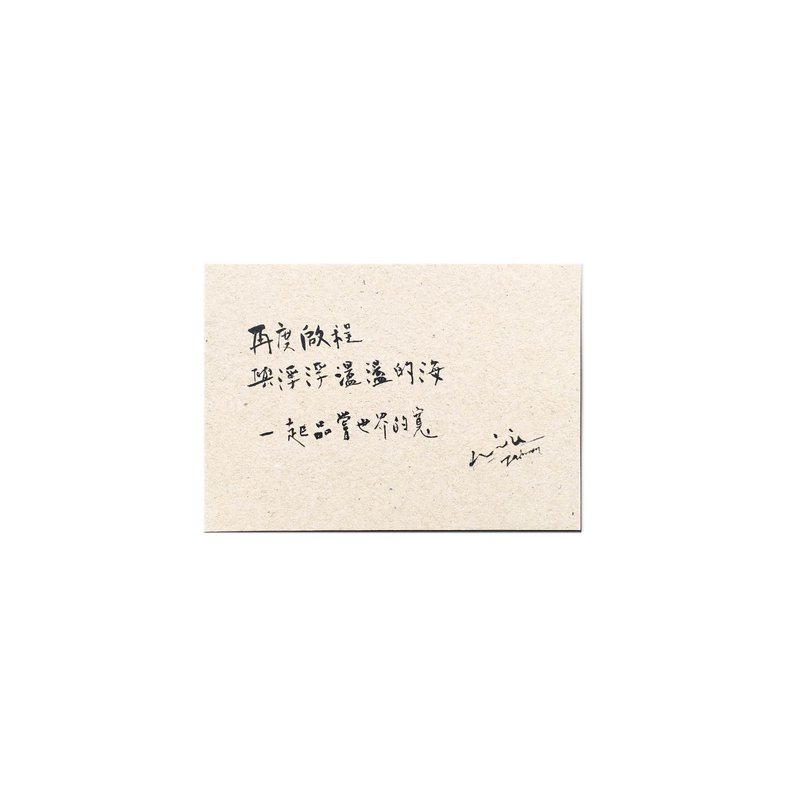 再度啟程
與浮浮盪盪的海
一起品嘗世界的寬
Taiwan